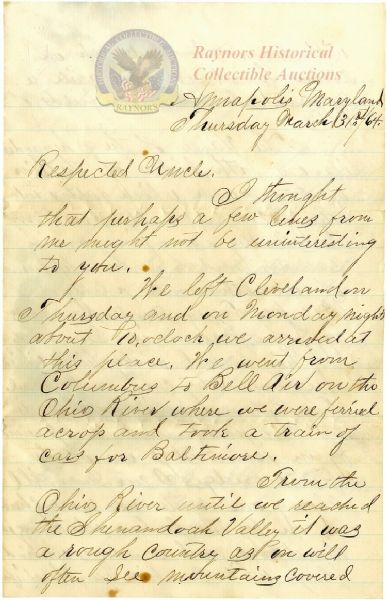 Raynors Historical
Collectible Auctions
HISTORICAL COLLECTIBLE AUCTIONS
RAYNOR'S
Annapolis Maryland
Thursday March 31st/64.
Respected Uncle.
I thought
that perhaps a few lines from
me might not be uninteresting
to you.
We left Cleveland on
Thursday and on Monday night
about 10, oclock we arrived at
this place. We went from
Columbus to Bell Air on the
Ohio River where we were ferried
across and took a train of
cars for Baltimore.
From the
Ohio River until we reached
the Shenandoah Valley it was
a rough country as on will
often see mountains covered